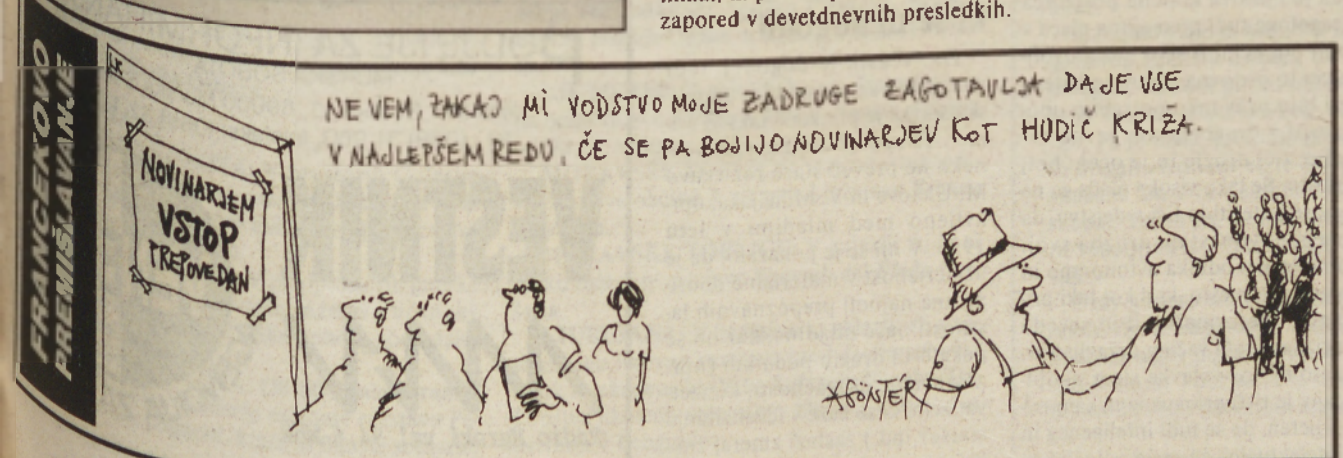 zapored v devetdnevnih presledkih.
FRANCEKOVO
PREMIŠLAVANJE
LK
NE VEM, ZAKAJ MI VODSTVO MOJE ZADRUGE ZAGOTAVLJA DA JE VSE
V NAJLEPŠEM REDU, ČE SE PA BOJIJO NOVINARJEV KOT HUDIČ KRIŽA.
NOVINARJEM
VSTOP
PREPOVEDAN